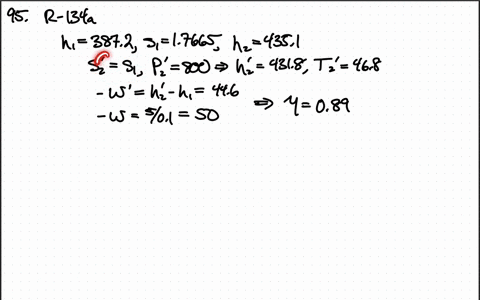 95. R-134a
h₁ = 387.2, s₁ = 1.7665, h₂ = 435.1
s₂ = s₁, P₂' = 800 ⇒ h₂' = 431.8, T₂' = 46.8
- w' = h₂' - h₁ = 44.6
- w = 5/0.1 = 50 ⇒ η = 0.89